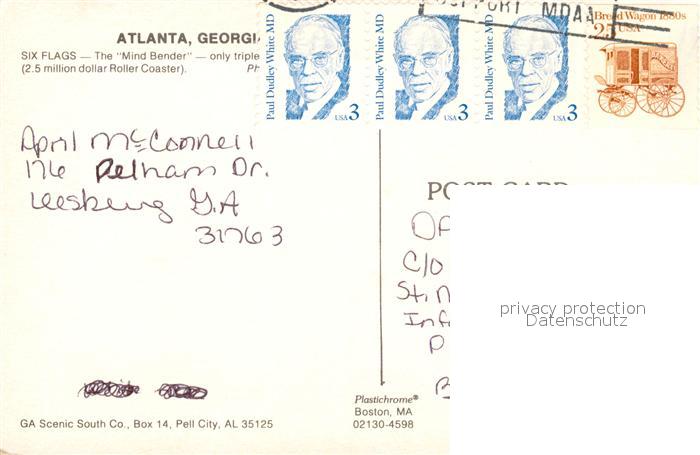 ATLANTA, GEORGI
SIX FLAGS — The "Mind Bender" — only triple
(2.5 million dollar Roller Coaster). Ph
Paul Dudley White MD
USA 3
Paul Dudley White MD
USA 3
Paul Dudley White MD
USA 3
MDAA
Bread Wagon 1880s
25 USA
April McConnell
176 Pelham Dr.
Leesburg G.A
31763
POST CARD
C/O
St.
privacy protection
Datenschutz
Plastichrome®
Boston, MA
02130-4598
GA Scenic South Co., Box 14, Pell City, AL 35125